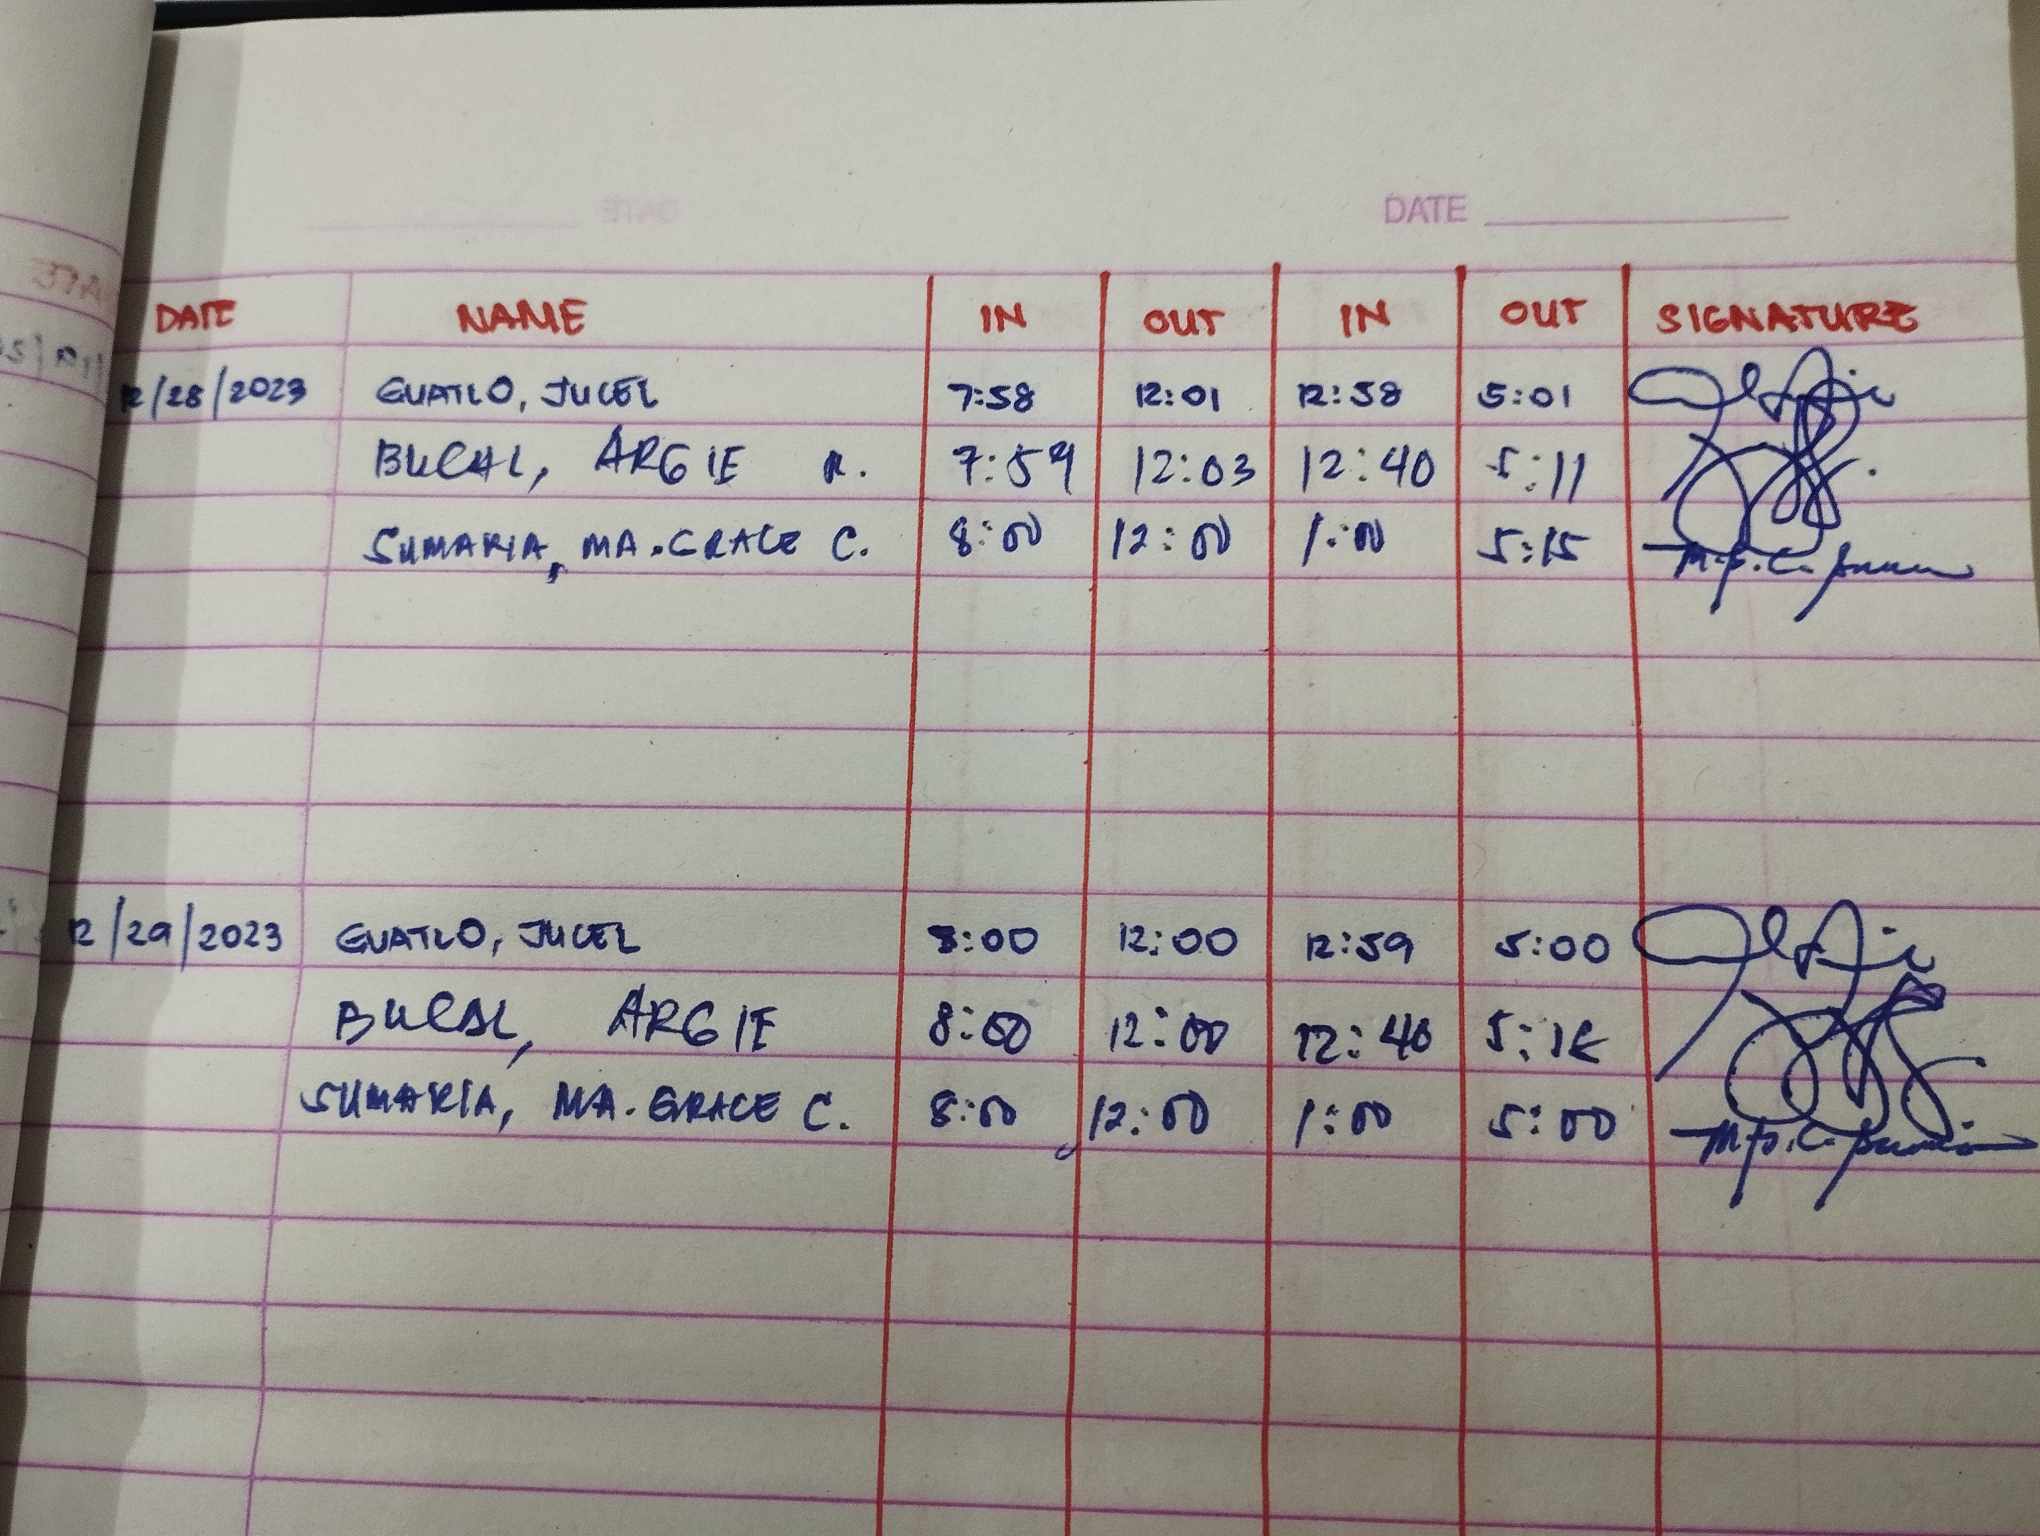 DATE
DATE NAME IN OUT IN OUT SIGNATURE
12/28/2023 GUATLO, JUCEL 7:58 12:01 12:58 5:01
BUCAL, ARGIE R. 7:59 12:03 12:40 5:11
SUMARIA, MA. GRACE C. 8:00 12:00 1:00 5:15
12/29/2023 GUATLO, JUCEL 8:00 12:00 12:59 5:00
BUCAL, ARGIE 8:00 12:00 12:40
SUMARIA, MA. GRACE C. 8:00 12:00 1:00 5:00